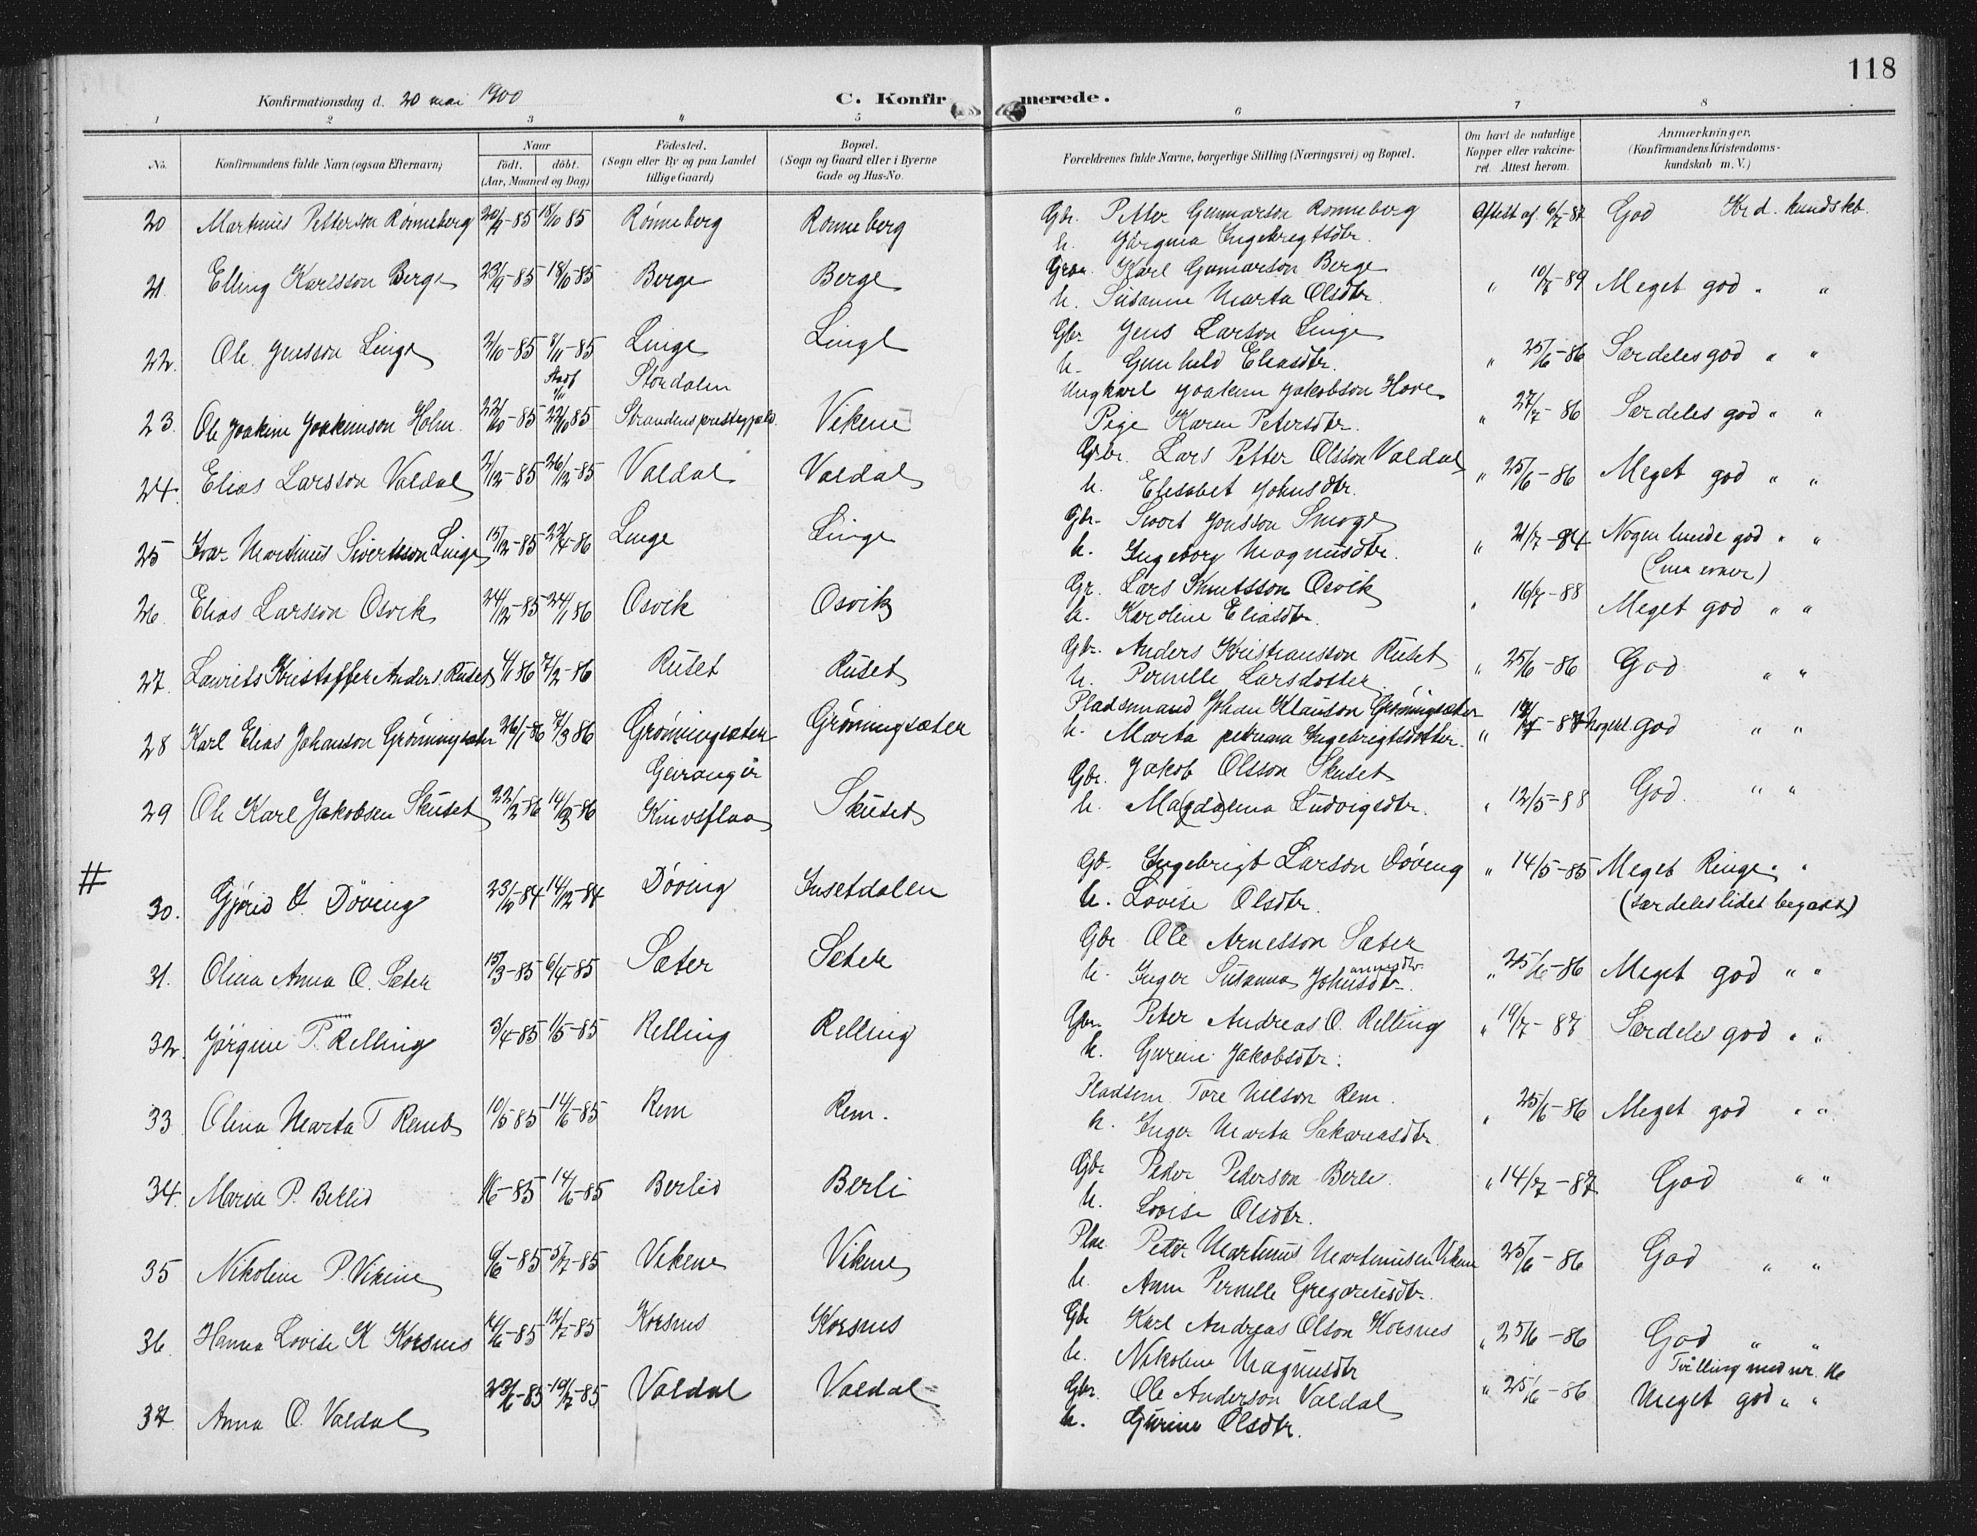 118
Konfirmationsdag d. 20 mai 1900
C. Konfirmerede.
1 2 3 4 5 6 7 8
No. Konfirmandens fulde Navn (ogsaa Efternavn) Naar født. døbt. (Aar, Maaned og Dag) Fødested. (Sogn eller By og paa Landet tillige Gaard) Bopæl. (Sogn og Gaard eller i Byerne Gade og Hus-No. Forældrenes fulde Navne, borgerlige Stilling (Næringsvei) og Bopæl. Om havt de naturlige Kopper eller vaccineret. Attest herom. Anmærkninger. (Konfirmandens Kristendomskundskab m. V.)
20 Martinus Petterson Rønneberg 20/9-85 18/10 85 Rønneberg Rønneberg Gbr. Petter Gunnarson Rønneberg Attest af 6/7-87 God Krd. kundskb.
h. Jørgina Ingebregtsdtr.
21 Elling Karlsson Berge 23/9-85 18/10-85 Berge Berge Gbr. Karl Gunnarson Berge " 10/7-89 Meget god " "
h. Susanne Marta Olsdtr.
22. Ole Jensson Linge 2/10-85 /11-85 Linge Linge Gbr. Jens Larson Linge " 25/6-86 Særdeles god " "
h. Gunhild Eliasdtr.
23. Ole Joakim Joakimson Holm 22/10-85 22/10 85 Stordalen Strandens prestegjeld. Vikene Ungkarl Joakim Jakobson Hove " 27/7-86 Særdeles god " "
Pige Karen Petersdtr.
24. Elias Larsson Valdal 2/12-85 26/12-85 Valdal Valdal Gbr. Lars Petter Olsson Valdal " 25/6-86 Meget god " "
h. Elisabet Johnsdtr.
25 Ivar Martinus Sivertsson Linge 15/12-85 22/4-86 Linge Linge Gbr. Sivert Jonsson Smoge " 21/7-84 Nogenlunde god " "
h. Ingeborg Magnusdtr. (Smaa evner)
26. Elias Larsson Osvik 24/12-85 24/1 86 Osvik Osvik Gr. Lars Knutsson Osvik " 16/7-88 Meget god " "
h. Karoline Eliasdtr.
27. Laurits Kristoffer Anders. Ruset 4/1 86 7/2-86 Ruset Ruset Gbr. Anders Kristiansson Ruset " 25/6-86 God " "
h. Pernelle Larsdotter
28 Karl Elias Johanson Grønningsæter 26/1-86 7/3 86 Grønningsæter Grønningsæter Pladsmand Johan Klauson Grønningsæter " -87 Noget God " "
h. Marta Petrina Ingebregtsdotter.
29 Ole Karl Jakobsen Skuset 22/2-86 14/3-86 Geiranger Knivsflaa Skuset Gbr. Jakob Olsson Skuset " 12/5-88 God. " "
h. Ma(gda)lena Ludvigsdtr.
# 30. Gjørid I. Døving 23/10-84 14/12-84 Døving Insetdalen Gb. Ingebrigt Larson Døving " 14/5-85 Meget Ringe " "
h. Lovise Olsdtr. (særdeles lidet begavet)
31. Olina Anna O. Sæter 15/3-85 6/4-85 Sæter Sæter Gbr Ole Arnesson Sæter " 25/6-86 Meget god " "
h. Inger Susanna Johnsdtr. annesdtr.
32. Jørgine P. Relling 3/4-85 1/5-85 Relling Relling Gbr. Peter Andreas O. Relling " 19/7-87 Særdeles god " "
h. Gurine Jakobsdtr.
33 Olina Marta T Remb 10/5-85 14/6-85 Rem Rem. Pladsm. Tore Nilson Rem. " 25/6-86 Meget god " "
h. Inger Marta Sakariasdtr.
34. Marie P. Berlid 1/6-85 14/6-85 Berlid Berli Gbr Peder Pederson Berli. " 14/7-87 God " "
h. Lovise Olsdtr.
35 Nikoline P. Vikene 9/6-85 5/7-85 Vikene Vikene Plm. Peter Martinus Martinusen Vikene 25/6-86 God " "
h. Anne Pernelle Gregoriusdtr.
36. Hanna Lovise K Korsnes /6-85 12/7-85 Korsnes Korsnes Gbr Karl Andreas Olson Korsnes " 25/6-86 God " "
h. Nikoline Magnusdtr Tvilling med nr. 16
37 Anna O. Valdal 23/6-85 19/7-85 Valdal Valdal Gbr. Ole Anderson Valdal " 25/6-86 Meget god " "
h. Gurine Olsdtr.